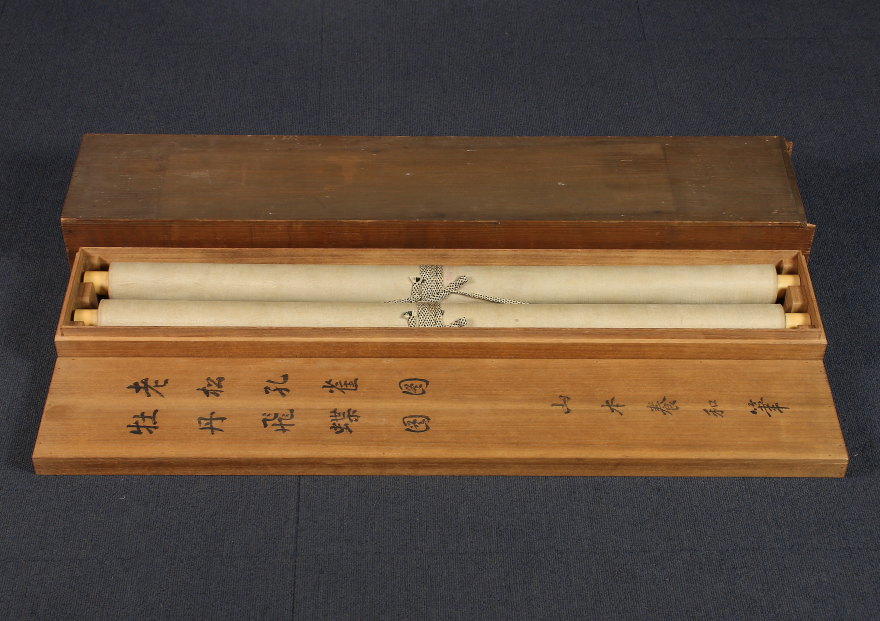 老松孔雀図
牡丹飛蝶図
山本養和筆